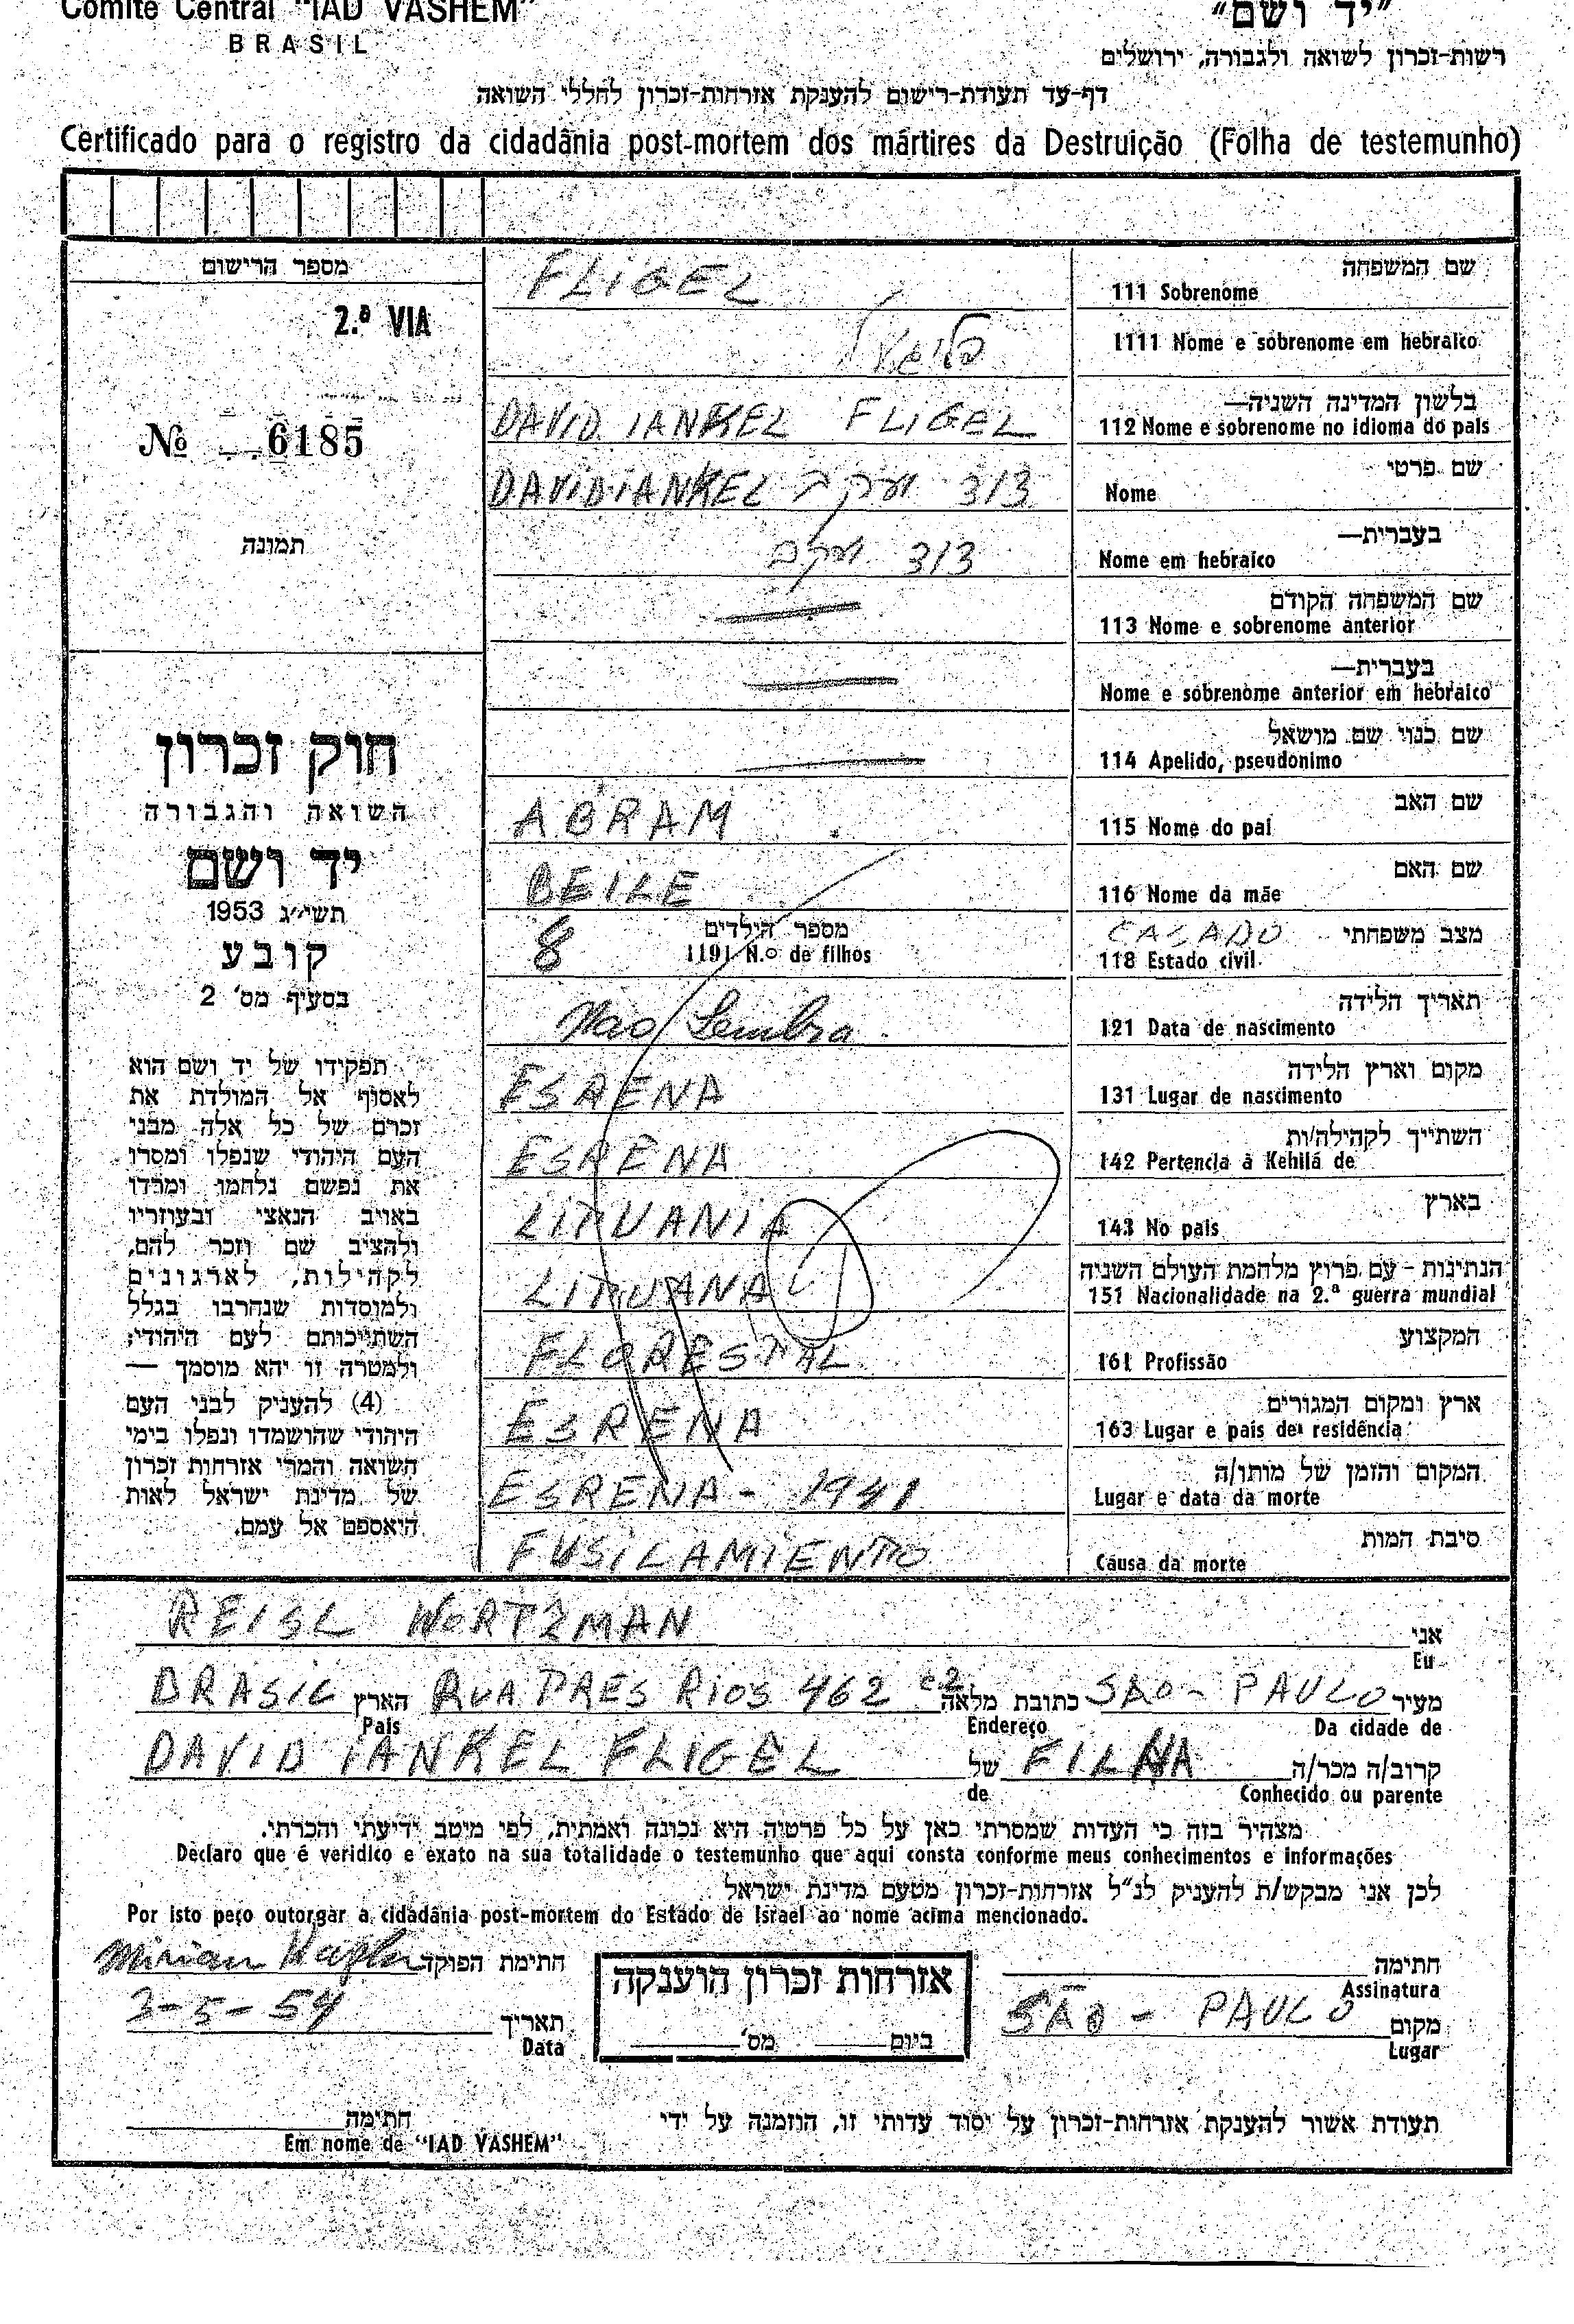 Comité Central "IAD VASHEM"
BRASIL
"יד ושם"
רשות-זכרון לשואה ולגבורה, ירושלים
דף-עד תעודת-רישום להענקת אזרחות-זכרון לחללי השואה
Certificado para o registro da cidadânia post-mortem dos mártires da Destruição (Folha de testemunho)
מספר הרישום
2.ª VIA
№ 6185
תמונה
חוק זכרון
השואה והגבורה
יד ושם
תשי״ג 1953
קובע
בסעיף מס' 2
תפקידו של יד ושם הוא
לאסוף אל המולדת את
זכרם של כל אלה מבני
העם היהודי שנפלו ומסרו
את נפשם נלחמו ומרדו
באויב הנאצי ובעוזריו
ולהציב שם וזכר להם,
לקהילות, לארגונים
ולמוסדות שנחרבו בגלל
השתייכותם לעם היהודי;
ולמטרה זו יהא מוסמך —
(4) להעניק לבני העם
היהודי שהושמדו ונפלו בימי
השואה והמרי אזרחות זכרון
של מדינת ישראל לאות
היאספם אל עמם.
שם המשפחה
111 Sobrenome FLIGEL
1111 Nome e sobrenome em hebraico פליגעל
בלשון המדינה השניה—
112 Nome e sobrenome no idioma do pais DAVID IANKEL FLIGEL
שם פרטי
Nome DAVID IANKEL דוד יאנקל
בעברית—
Nome em hebraico דוד יאנקל
שם המשפחה הקודם
113 Nome e sobrenome anterior —
בעברית—
Nome e sobrenome anterior em hebraico —
שם כנוי שם מושאל
114 Apelido, pseudonimo —
שם האב
115 Nome do pai ABRAM
שם האם
116 Nome da mãe BEILE
מצב משפחתי
118 Estado civil CASADO
מספר הילדים
1191 N.o de filhos 8
תאריך הלידה
121 Data de nascimento Nao Lembra
מקום וארץ הלידה
131 Lugar de nascimento ESRENA
השתייך לקהילה/ות
142 Pertencia à Kehilá de ESRENA
בארץ
143 No pais LITUANIA
הנתינות - עם פרוץ מלחמת העולם השניה
151 Nacionalidade na 2.ª guerra mundial LITUANA
המקצוע
161 Profissão FLORESTAL
ארץ ומקום המגורים
163 Lugar e pais de residência ESRENA
המקום והזמן של מותו/ה
Lugar e data da morte ESRENA - 1941
סיבת המות
Causa da morte FUSILAMIENTO
אני
Eu REISL WORTZMAN
מעיר SAO - PAULO כתובת מלאה RUA PAES RIOS 462 c2 הארץ BRASIL
Da cidade de Endereço Pais
קרוב/ה מכר/ה FILHA של DAVID IANKEL FLIGEL
Conhecido ou parente de
מצהיר בזה כי העדות שמסרתי כאן על כל פרטיה היא נכונה ואמתית, לפי מיטב ידיעתי והכרתי.
Declaro que é veridico e exato na sua totalidade o testemunho que aqui consta conforme meus conhecimentos e informações
לכן אני מבקש/ת להעניק לנ״ל אזרחות-זכרון מטעם מדינת ישראל
Por isto peço outorgar a cidadânia post-mortem do Estado de Israel ao nome acima mencionado.
חתימה
Assinatura
מקום
Lugar SAO - PAULO
אזרחות זכרון הוענקה
ביום מס'
חתימת הפוקד Mirian
תאריך
Data 3-5-54
תעודת אשור להענקת אזרחות-זכרון על יסוד עדותי זו, הוזמנה על ידי
חתימה
Em nome de "IAD VASHEM"